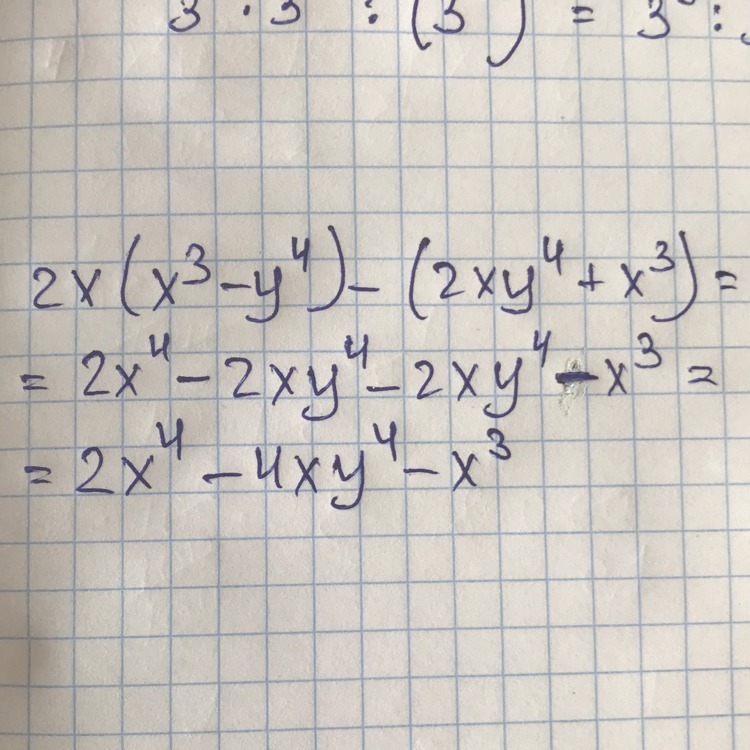 3 · 3 : (3 ) = 3 :
2x(x³-y⁴)-(2xy⁴+x³)=
=2x⁴-2xy⁴-2xy⁴-x³=
=2x⁴-4xy⁴-x³